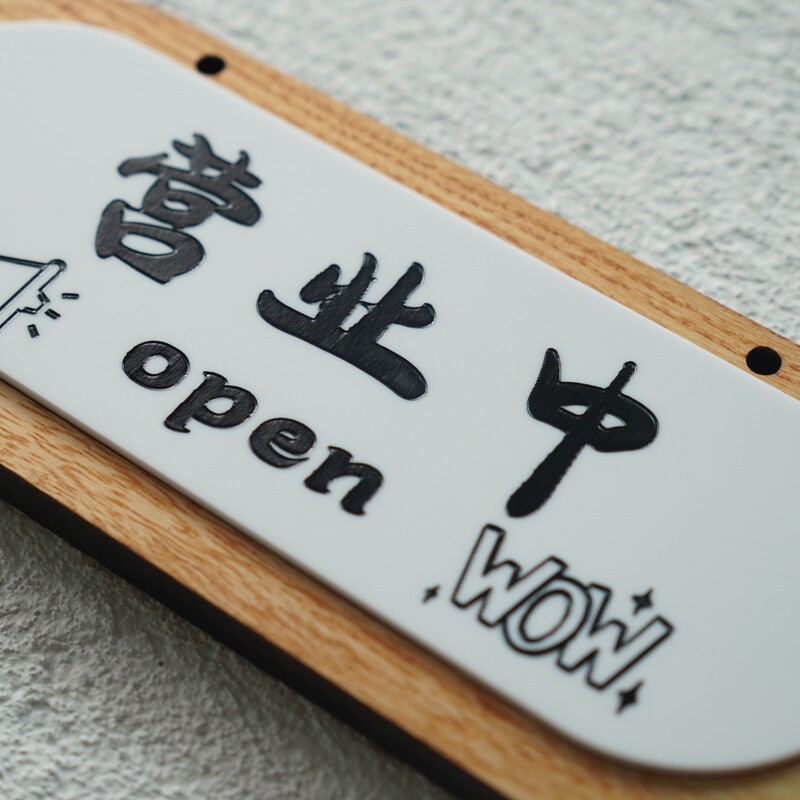 营业中
open
WOW